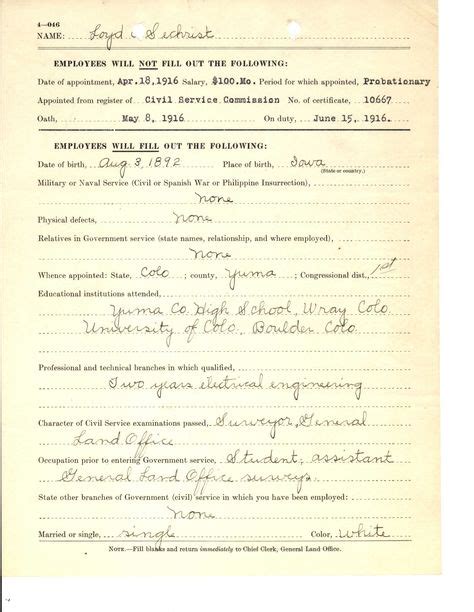 4—046
NAME: Loyd C Sechrist
EMPLOYEES WILL NOT FILL OUT THE FOLLOWING:
Date of appointment, Apr. 18, 1916 Salary, $100. Mo. Period for which appointed, Probationary
Appointed from register of Civil Service Commission No. of certificate, 10667
Oath, May 8, 1916 On duty, June 15, 1916.
EMPLOYEES WILL FILL OUT THE FOLLOWING:
Date of birth, Aug 3, 1892 Place of birth, Iowa
(State or country.)
Military or Naval Service (Civil or Spanish War or Philippine Insurrection),
None
Physical defects, None
Relatives in Government service (state names, relationship, and where employed),
None
Whence appointed: State, Colo ; county, Yuma ; Congressional dist., 1st
Educational institutions attended,
Yuma Co. High School, Wray Colo.
University of Colo., Boulder Colo.
Professional and technical branches in which qualified,
Two years electrical engineering
Character of Civil Service examinations passed, Surveyor, General
Land Office
Occupation prior to entering Government service, Student, assistant
General Land Office surveys.
State other branches of Government (civil) service in which you have been employed:
None
Married or single, single Color, White
NOTE.—Fill blanks and return immediately to Chief Clerk, General Land Office.